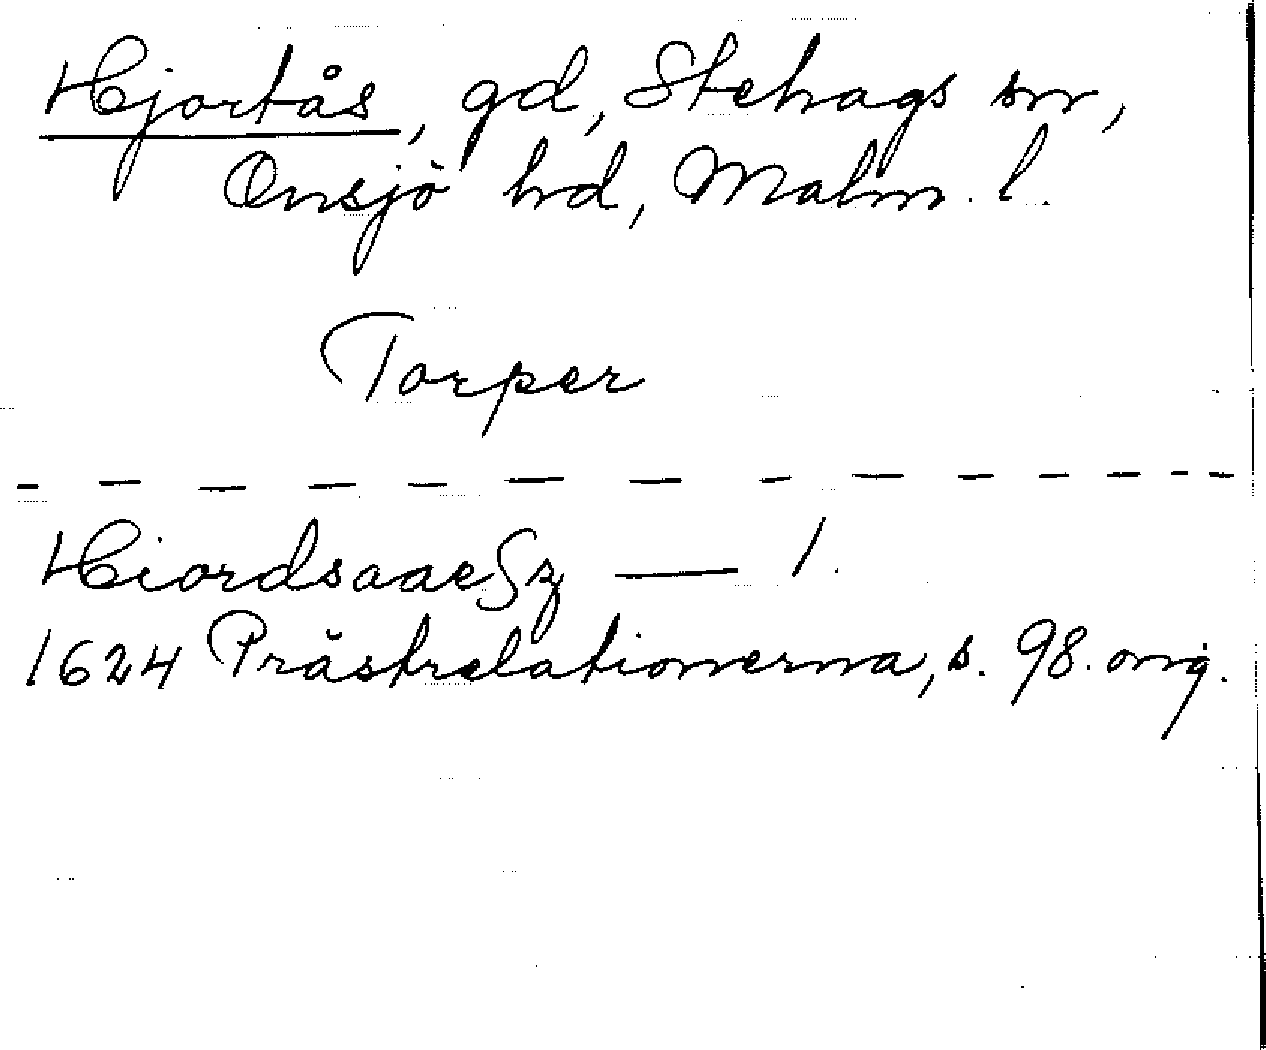 Hjortås, gd, Stehags sn,
Onsjö hd, Malm. l.
Torper
Hiordsaaesz — 1.
1624 Prästrelationerna, s. 98. orig.